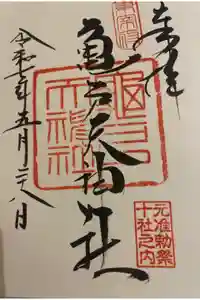 奉拝
東宰府
亀戸天神社
亀戸天神社
元准勅祭
十社之内
令和七年五月二八日